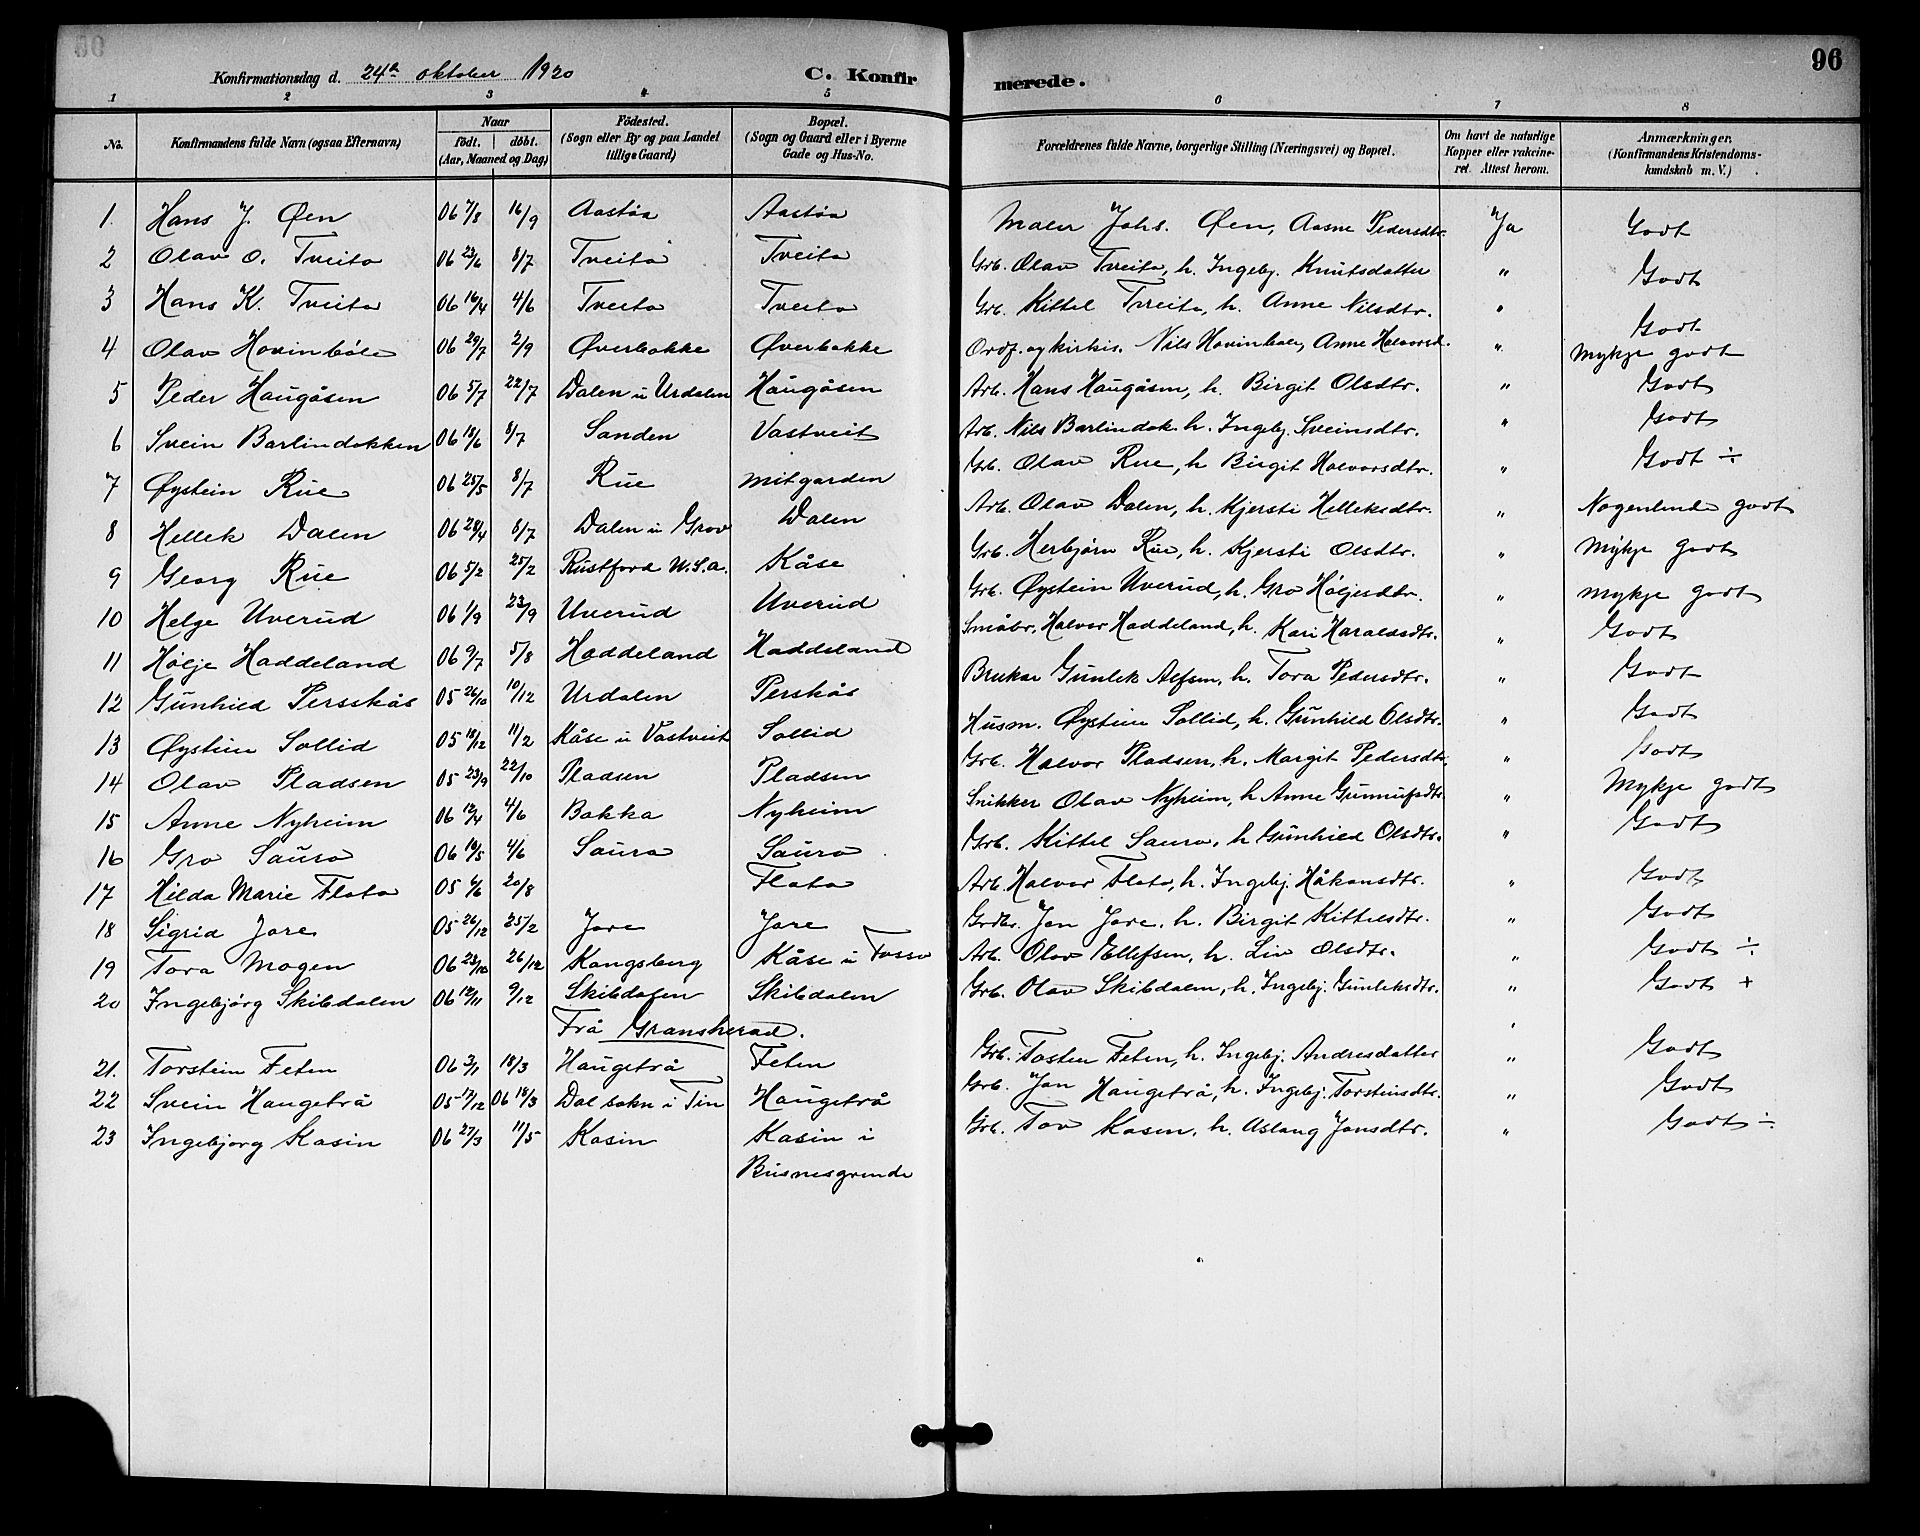 Konfirmationsdag d. 24de oktober 1920 C. Konfir
merede. 96
1 2 3 4 5 6 7 8
No. Konfirmandens fulde Navn (ogsaa Efternavn) Naar födt. döbt. (Aar, Maaned og Dag) Födested. (Sogn eller By og paa Landet tillige Gaard) Bopæl. (Sogn og Gaard eller i Byerne Gade og Hus-No. Forældrenes fulde Navne, borgerlige Stilling (Næringsvei) og Bopæl. Om havt de naturlige Kopper eller vakcineret. Attest herom. Anmærkninger. (Konfirmandens Kristendomskundskab m. V.)
1. Hans J. Øen 06 7/8 16/9 Aastøa Aastøa Maler Johs. Øen, Aasne Pedersdtr. Ja Godt
2 Olav O. Tveito 06 23/6 8/7 Tveito Tveito Grb. Olav Tveito, h. Ingebj. Knutsdatter " Godt
3 Hans K. Tveito 06 16/4 4/6 Tveito Tveito Grb. Kittel Tveito, h. Anne Nilsdtr. " Godt
4 Olav Hovinbøle 06 29/7 2/9 Øverbøkke Øverbøkke Ordf. og kirkis. Nils Hovinbøle, Anne Halvorsd. " Mykje godt
5 Peder Haugåsen 06 5/7 22/7 Dalen u Urdalen Haugåsen Arb. Hans Haugåsen, h. Birgit Olsdtr. " Godt
6 Svein Barlindokken 06 18/6 8/7 Sanden Vastveit Arb. Nils Barlindok. h. Ingebj. Sveinsdtr. " Godt
7 Øystein Rue 06 25/5 8/7 Rue Mitgarden Grb. Olav Rue, h Birgit Halvorsdtr. " Godt ÷
8 Hellek Dalen 06 28/4 8/7 Dalen u Grov Dalen Arb. Olav Dalen, h. Kjersti Helleksdtr. " Nogenlunde godt
9 Georg Rue 06 5/2 25/2 Rustford U.S.a. Kåse Grb. Herbjørn Rue, h. Kjersti Olsdtr. " Mykje godt
10 Helge Uverud 06 1/9 23/9 Uverud Uverud Grb. Øystein Uverud, h. Gro Høljesdtr. " Mykje godt
11 Hølje Haddeland 06 9/7 5/8 Haddeland Haddeland Småbr. Halvor Haddeland, h. Kari Haraldsdtr. " Godt
12 Gunhild Persskås 05 26/10 10/12 Urdalen Perskås Brukar Gunlek Alfsen, h. Tora Pedersdtr. " Godt
13 Øystein Sollid 05 18/12 11/2 Kåse u Vastveit Sollid Husm. Øystein Sollid, h. Gunhild Olsdtr. " Godt
14 Olav Pladsen 05 23/9 22/10 Pladsen Pladsen Grb. Halvor Pladsen, h. Margit Pedersdtr. " Godt
15 Anne Nyheim 06 12/4 4/6 Bakka Nyheim Snikker Olav Nyheim, h Anne Gunnulfsdtr. " Mykje godt
16 Gro Sauro 06 18/5 4/6 Sauro Sauro Grb. Kittel Sauro, h Gunhild Olsdtr. " Godt
17 Hilda Marie Flato 05 6/6 20/8 Flato Arb. Halvor Flato, h. Ingebj. Håkonsdtr. " Godt
18 Sigrid Jore 05 26/12 25/2 Jore Jore Grdbr. Jon Jore. h. Birgit Kittelsdtr. " Godt
19 Tora Mogen 06 23/10 26/12 Kongsberg Kåse u Fosso Arb. Olav Ellefsen, h. Liv Olsdtr. " Godt ÷
20 Ingebjörg Skibdalen 06 12/11 9/12 Skibdalen Skibdalen Grb. Olav Skibdalen, h. Ingebj. Gunleksdtr. " Godt +
Frå Gransherad.
21. Torstein Feten 06 3/1 18/3 Haugetrå Feten Grb. Tosten Feten, h. Ingebj. Andresdatter " Godt
22 Svein Haugetrå 05 17/12 06 18/3 Dal sokn i Tin Haugetrå Grb. Jon Haugetrå, h. Ingebj. Torsteinsdtr. " Godt
23 Ingebjorg Kasin 06 27/3 11/5 Kasin Kasin i Grb. Tov Kasen, h. Aslaug Jonsdtr. " Godt ÷
Busnesgrende